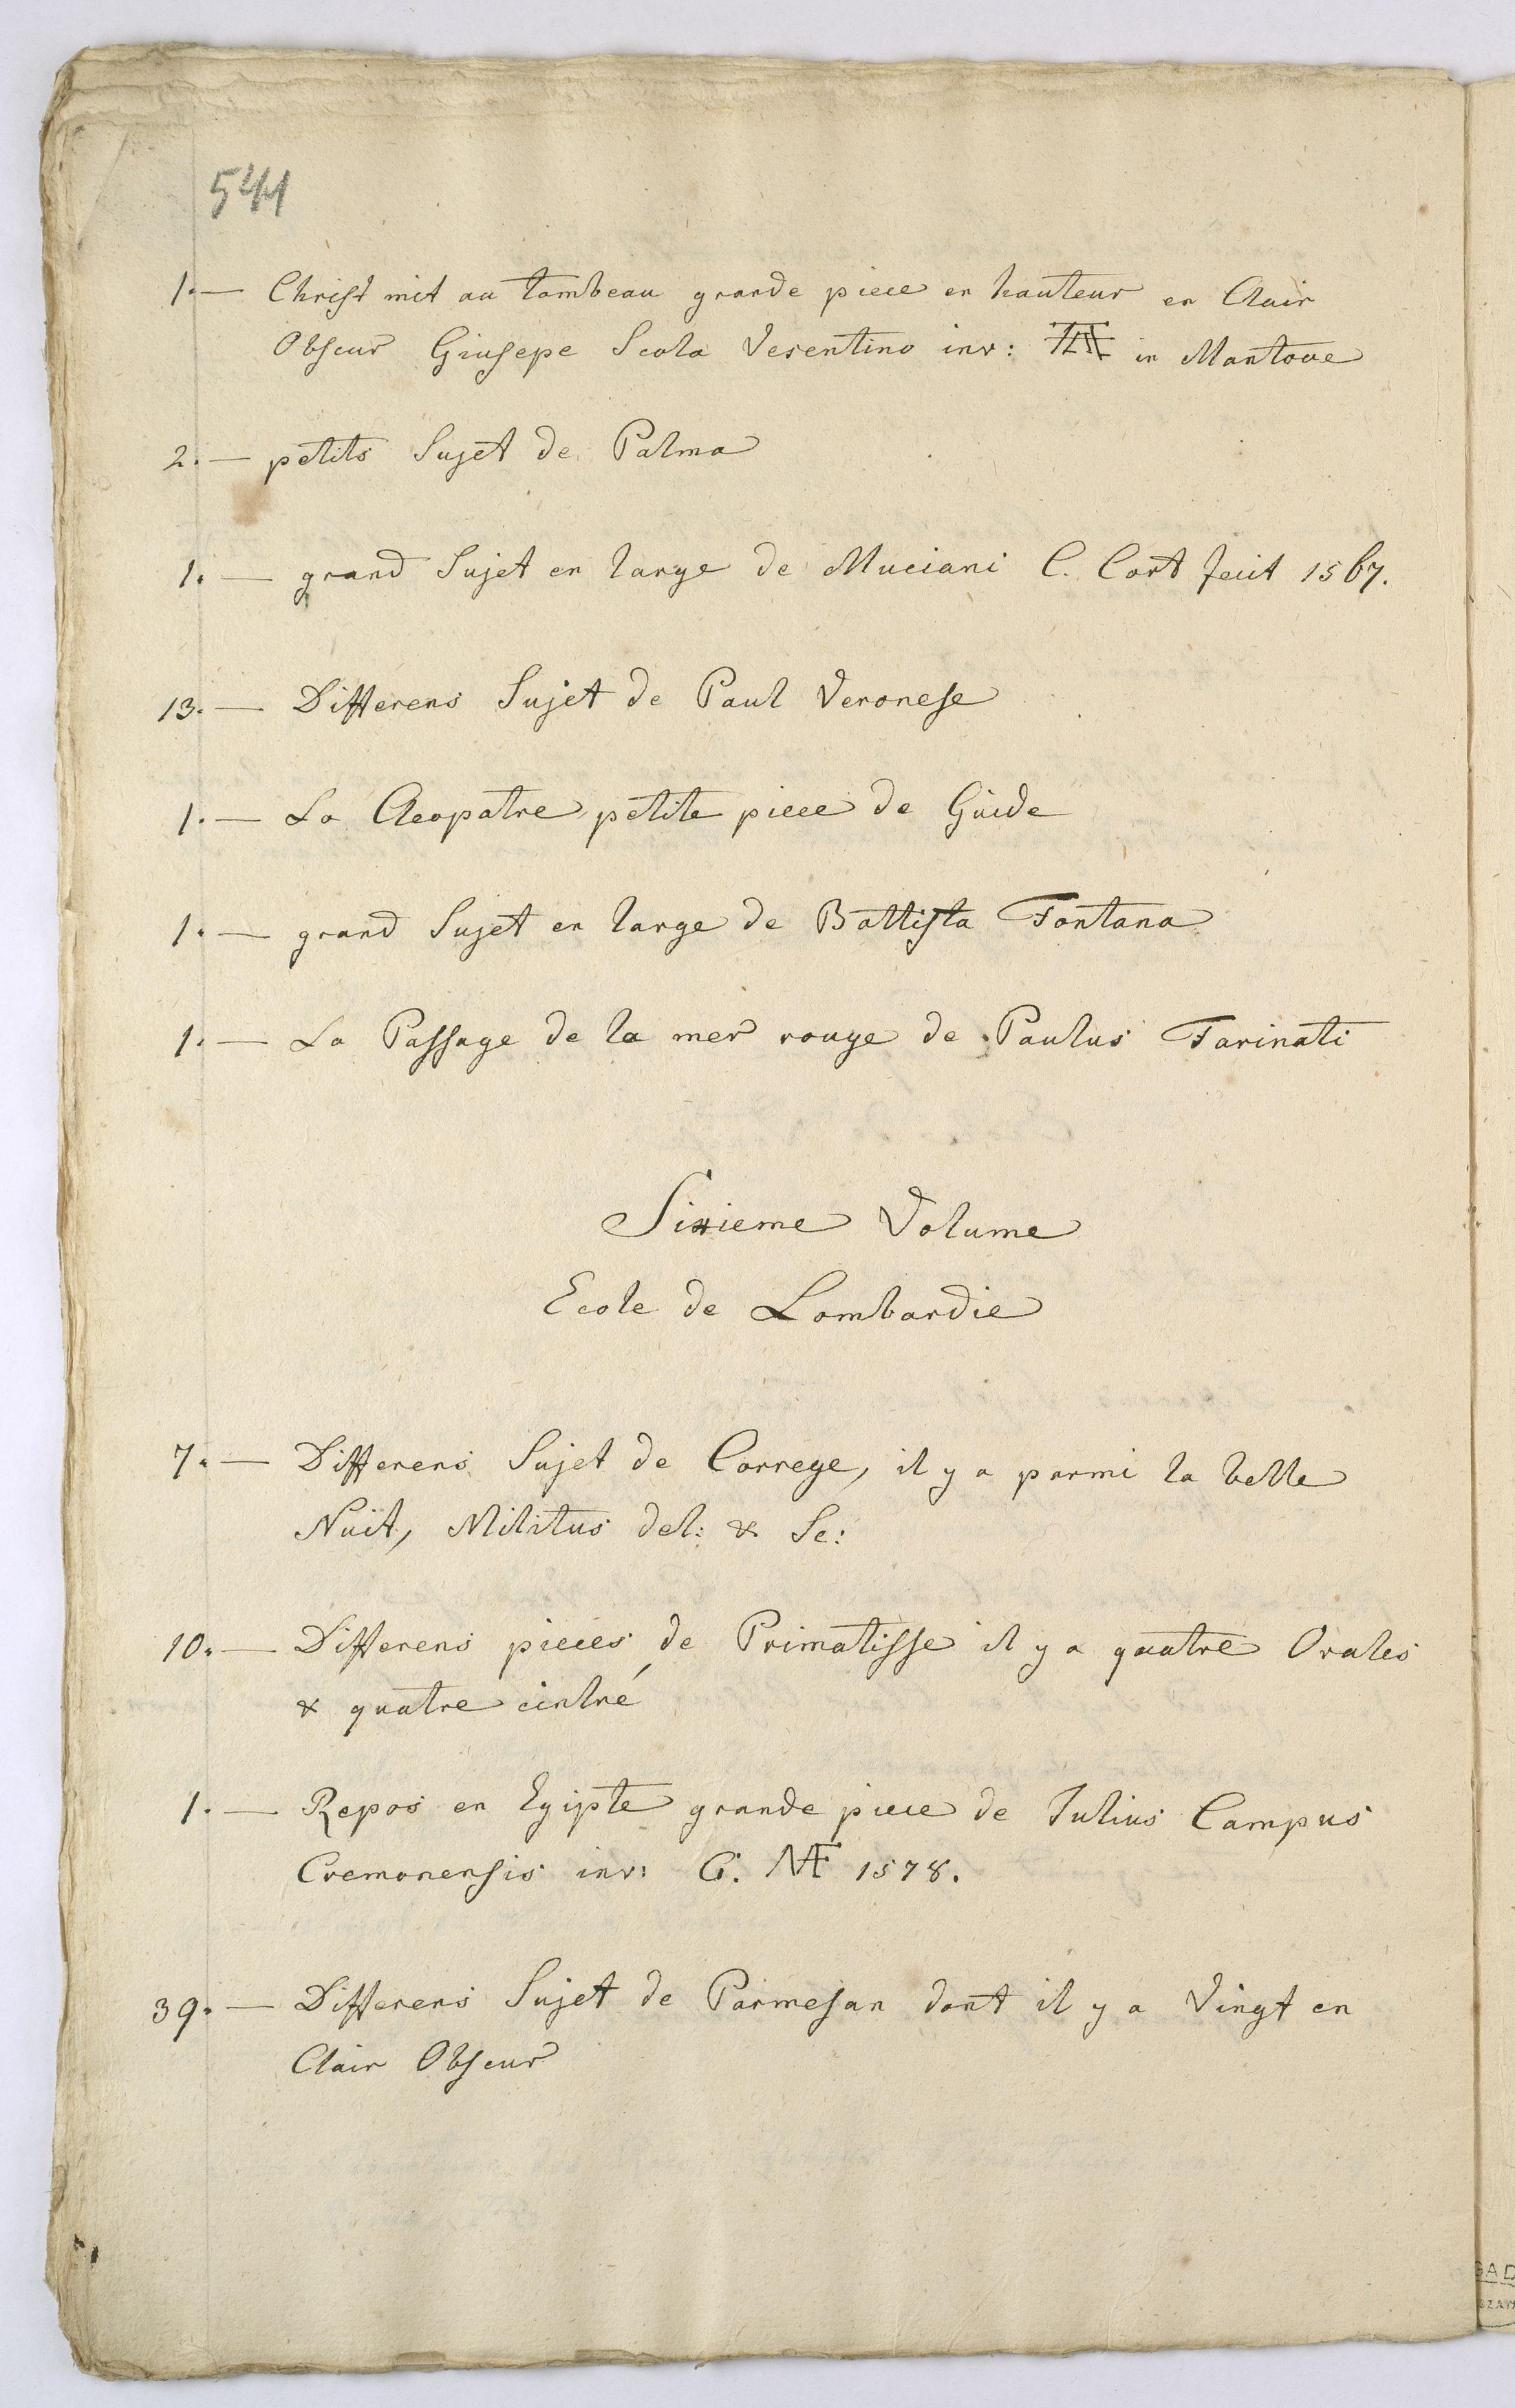 541
1. — Christ mit au tombeau grande piece en hauteur en Clair
Obscur Giusepe Scola Vesentino inv: in Mantoue
2. — petits Sujet de Palma
1. — grand Sujet en large de Muciani C. Cort fecit 1567.
13. — Differens Sujet de Paul Veronese
1. — La Cleopatre petite piece de Guide
1. — grand Sujet en large de Battista Fontana
1. — La Passage de la mer rouge de Paulus Farinati
Sixieme Volume
Ecole de Lombardie
7. — Differens Sujet de Correge, il y a parmi la belle
Nuit, Militus del: & Sc:
10. — Differens pieces de Primatisse il y a quatre Ovales
& quatre cintré
1. — Repos en Egipte grande piece de Julius Campus
Cremonensis inv: G. MF 1578.
39. — Differens Sujet de Parmesan dont il y a Vingt en
Clair Obscur